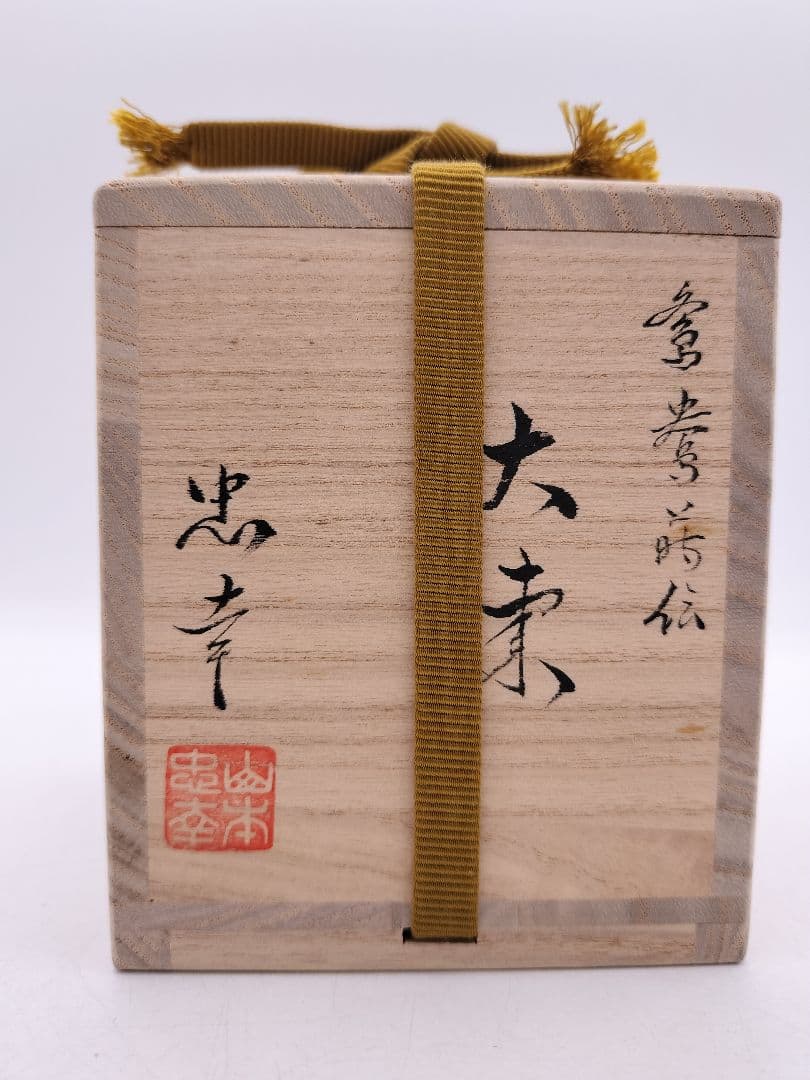 鴛鴦蒔絵
大棗
忠幸
山本
忠幸